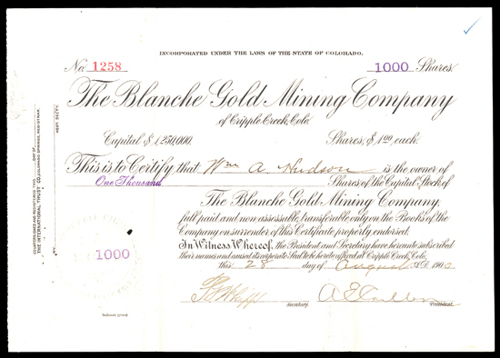 INCORPORATED UNDER THE LAWS OF THE STATE OF COLORADO.
No. 1258
1000 Shares
The Blanche Gold Mining Company
of Cripple Creek, Colo.
Capital $1,250,000. Shares, $1.00 each.
This is to Certify that Wm A. Hudson is the owner of
One Thousand Shares of the Capital Stock of
The Blanche Gold Mining Company,
full paid and non assessable, transferable only on the Books of the
Company on surrender of this Certificate properly endorsed.
In Witness Whereof, the President and Secretary have hereunto subscribed
their names and caused its corporate Seal to be hereto affixed at Cripple Creek, Colo.
this 28 day of August A.D. 190
Secretary President
1000
THE INTERNATIONAL TRUST CO.